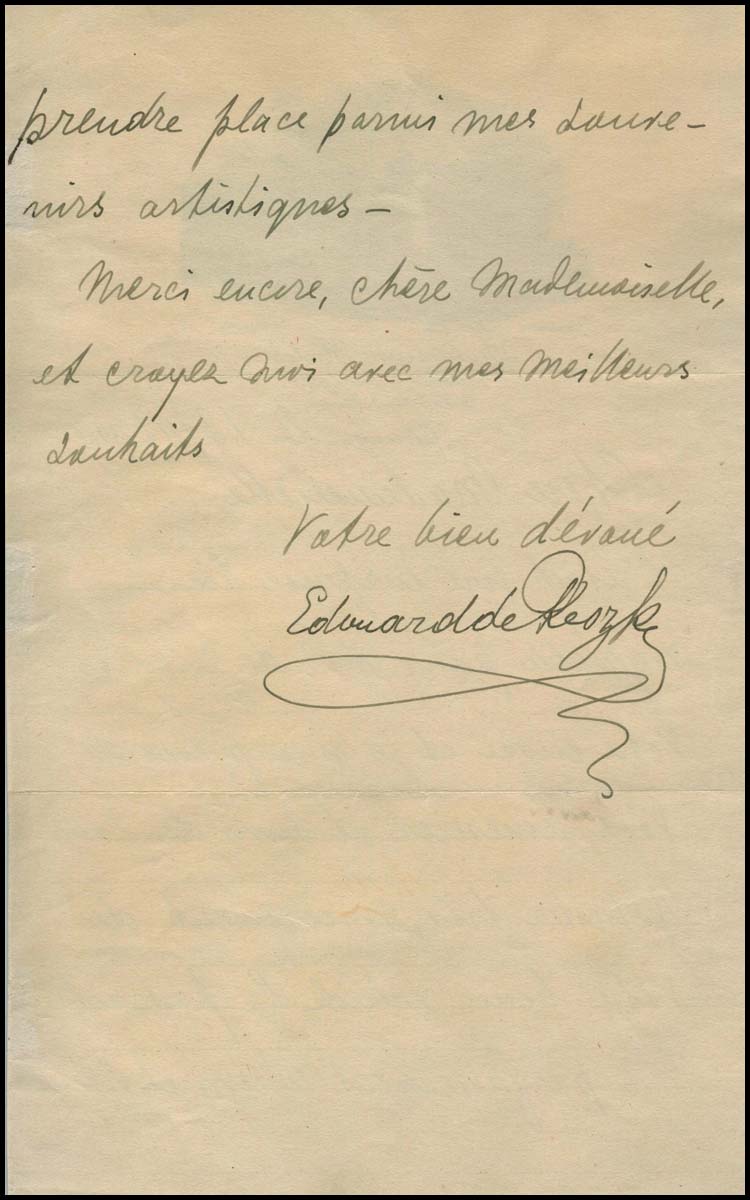 prendre place parmi mes souve-
nirs artistiques -
Merci encore, chère Mademoiselle,
et croyez moi avec mes meilleurs
souhaits
Votre bien dévoué
Edouard de Reszke